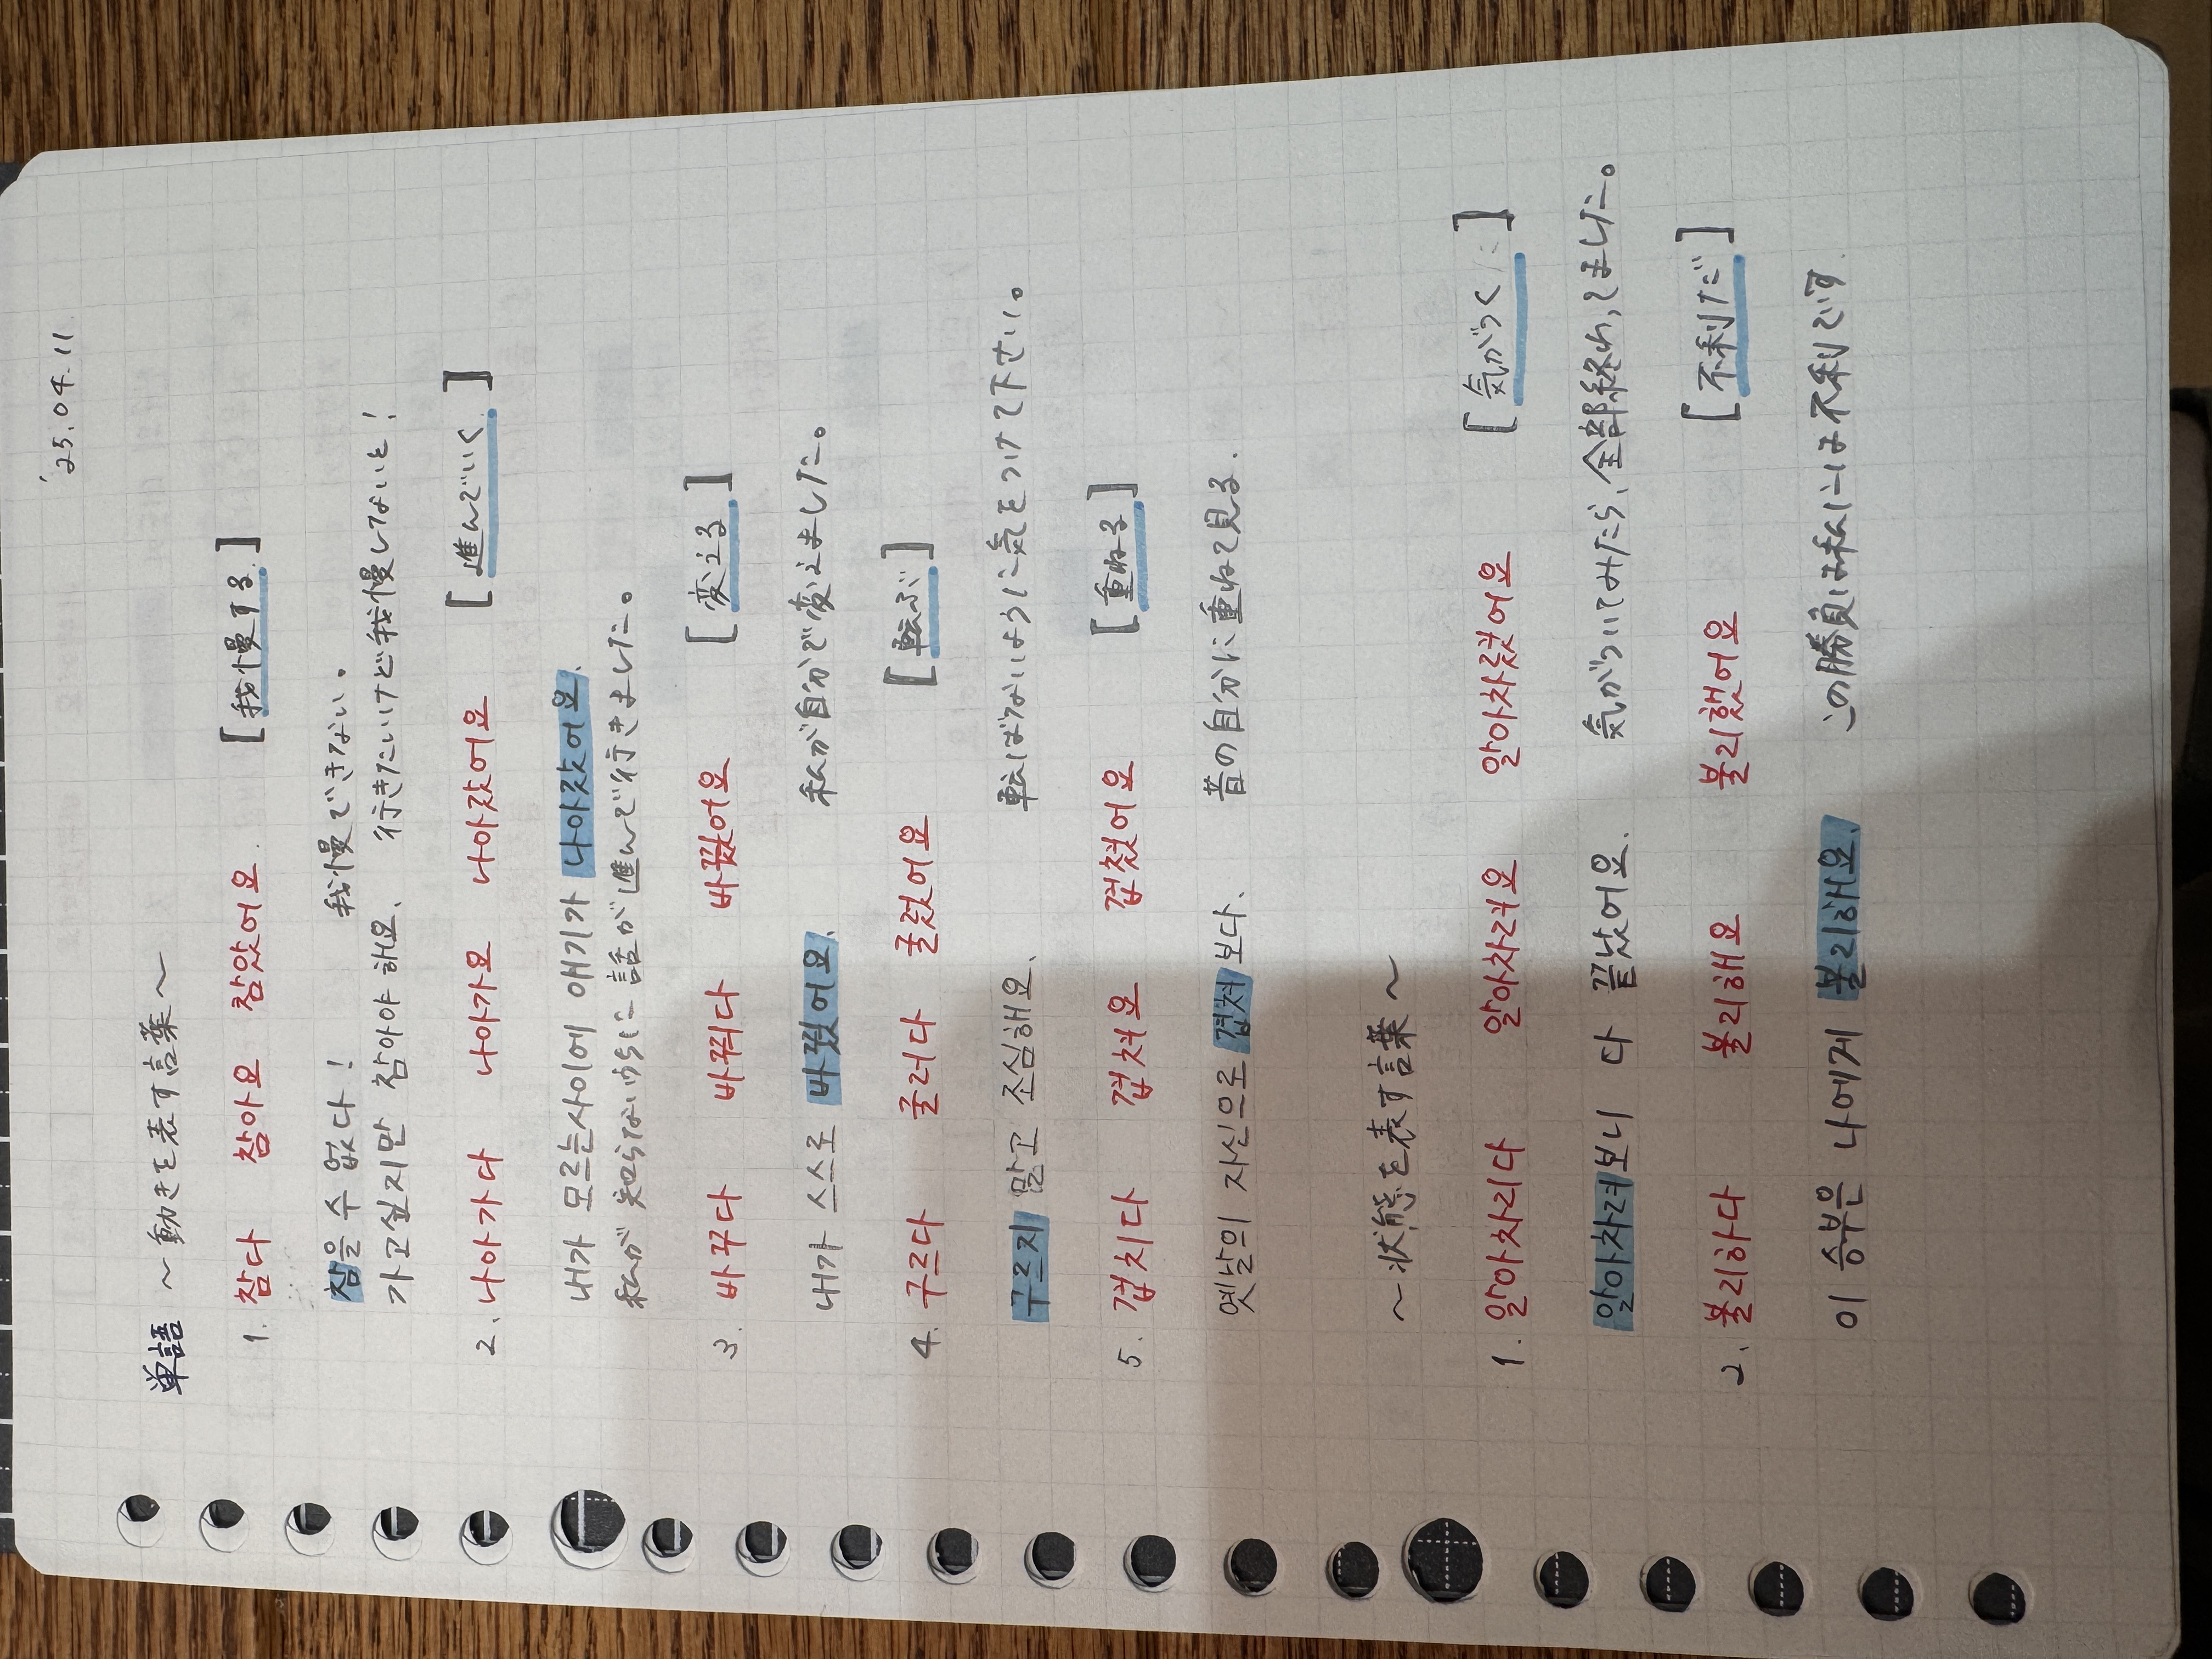 '25.04.11
単語 〜動きを表す言葉〜
1. 참다 참아요 참았어요. [我慢する]
참을 수 없다! 我慢できない。
가고싶지만 참아야 해요. 行きたいけど我慢してないと!
2. 나아가다 나아가요 나아갔어요 [進んでいく]
내가 모르는사이에 얘기가 나아갔어요.
私が 知らないうちに 話が進んで行きました。
3. 바꾸다 바꿔다 바꿨어요 [変える]
내가 스스로 바꿨어요. 私が自分で変えました。
4. 구르다 굴러다 굴렀어요 [転ぶ]
구르지 말고 조심해요. 転ばないように気をつけて下さい。
5. 겹치다 겹쳐요 겹쳤어요 [重ねる]
옛날의 자신으로 겹쳐보다. 昔の自分に重ねて見る.
〜状態を表す言葉〜
1. 알아차리다 알아차려요 알아차렸어요 [気がつく]
알아차려보니 다 끝났어요. 気がついてみたら、全部終わってました。
2. 불리하다 불리해요 불리했어요 [不利だ]
이 승부은 나에게 불리해요. この勝負は私には不利です.